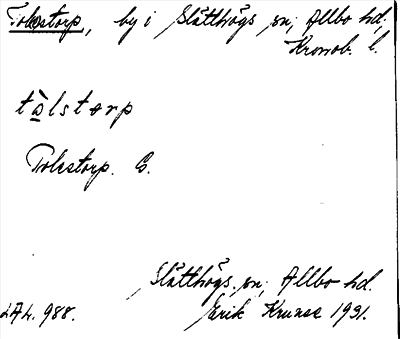 Tolestorp, by i Slätthögs sn, Allbo hd,
Kronob. l.
tòlstorp
Tolestorp. G.
Slätthögs. sn, Allbo hd.
LAL. 988. Erik Kruuse 1931.